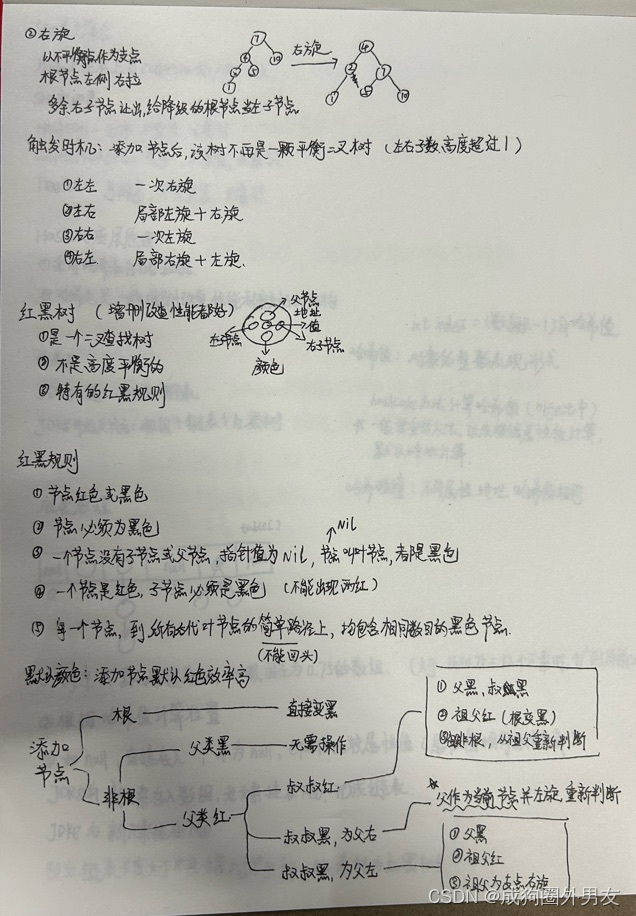 ②右旋
以不平衡点作为支点
根节点左侧右拉
多余右子节点让出,给降级的根节点当左子节点
7
4
10
右旋
4
7
10
触发时机:添加节点后,该树不再是一颗平衡二叉树(左右子数高度超过1)
①左左 一次右旋
②左右 局部左旋+右旋
③右右 一次左旋
④右左 局部右旋+左旋.
红黑树(增删改查性能都好)
父节点
地址
值
左子节点
右子节点
颜色
①是一个二叉查找树
②不是高度平衡的
③特有的红黑规则
红黑规则
①节点红色或黑色
②节点必须为黑色
Nil
③一个节点没有子节点或父节点,指针值为Nil,节点叫叶节点,都是黑色
④一个节点是红色,子节点必须是黑色(不能出现两红)
⑤每一个节点,到所有后代叶节点的简单路径上,均包含相同数目的黑色节点.
(不能回头)
默认颜色:添加节点默认红色效率高
添加
节点
根
直接变黑
非根
父类黑
无需操作
父类红
叔叔红
①父黑,叔黑
②祖父红(根变黑)
③非根,从祖父重新判断
叔叔黑,为父右
父作为节点并左旋,重新判断
叔叔黑,为父左
①父黑
②祖父红
③祖父为支点右旋
CSDN @成狗圈外男友